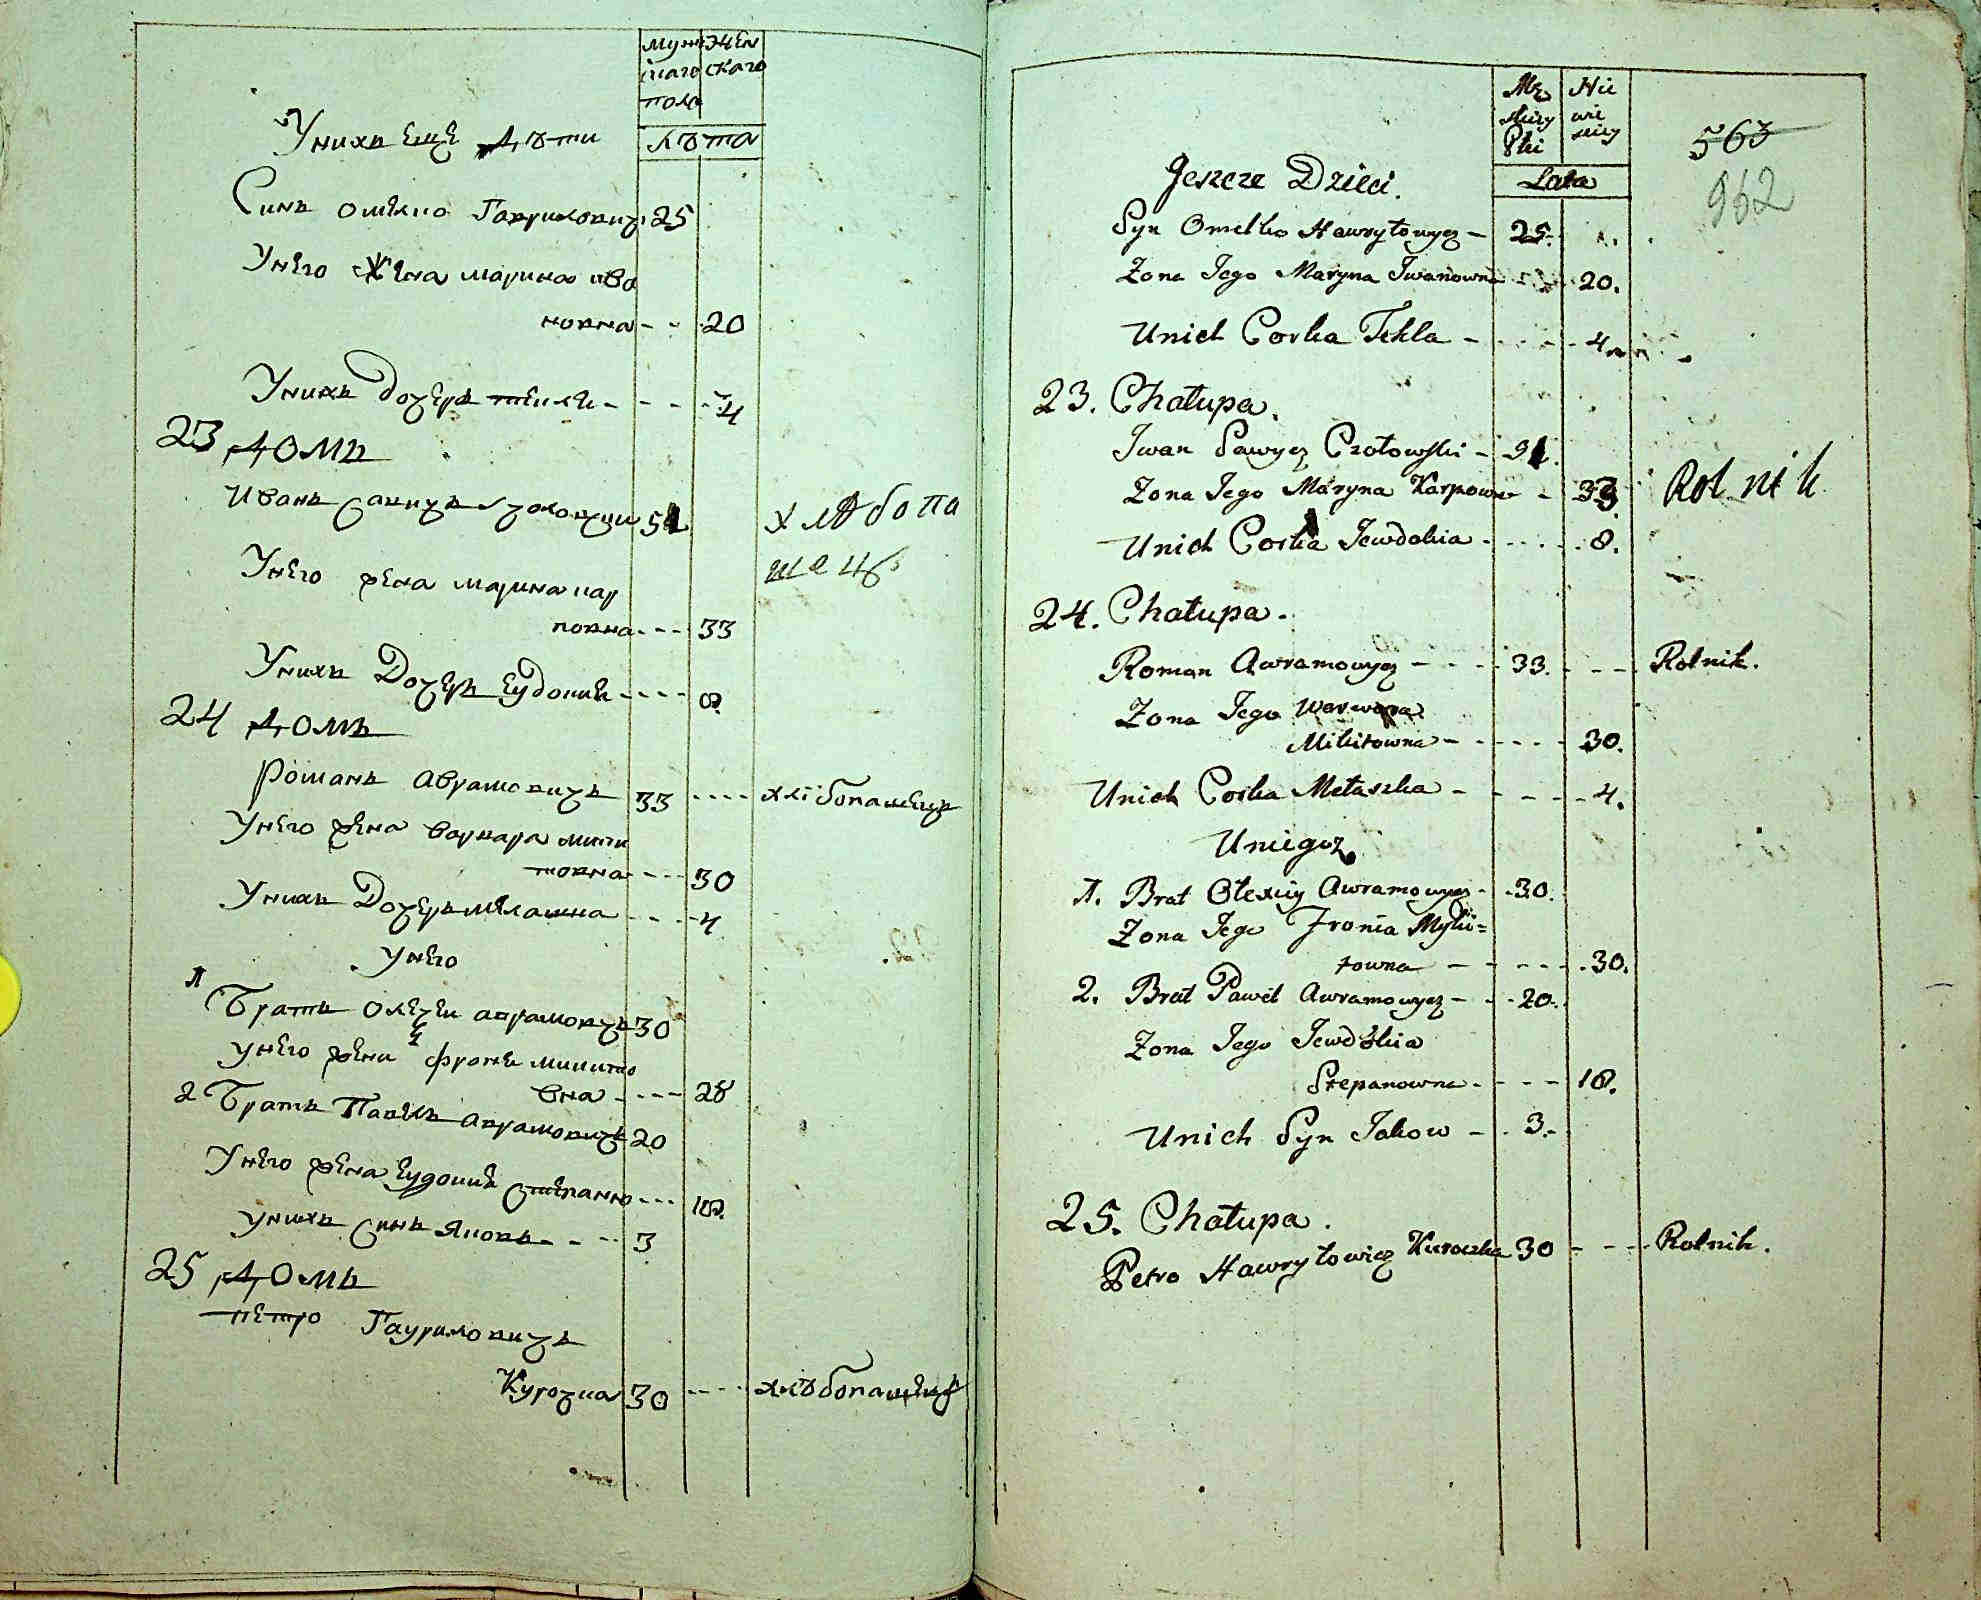 муж жен
скаго скаго
пола
лѣта
Унихъ еще дѣти
Синъ омелко Гаврилович 25
Унего Жена марина ива
новна - - 20
Унихъ дочеръ текля - - - - 4
23 домъ
Иванъ савичъ чзоловский
Унего жена марина кар
повна - - - 33
хлѣбопа
шецъ
Унихъ Дочеръ еудокия - - - - 8
24 домъ
Романъ Аврамовичъ 33 - - - - хлібопашецъ
Унего жена варвара мики
товна - - - 30
Унихъ Дочеръ мелашка - - - - 4
Унего
1 Братъ олексеи аврамовичъ 30
Унего жена фроня микито
вна - - - - 28
2 Братъ Павелъ аврамовичъ 20
Унего жена еудокия степанно - - - 18
Унихъ синъ Яковъ - - - - 3
25 домъ
петро Гаурило вичъ
Курочка 30 - - - - хлѣбопашецъ
Mę Nie
skiey wie
Płci sciey
Lata
563
962
Jeszcze Dzieci.
Syn Omelko Hawryłowycz - 25.
Żona Jego Maryna Iwanowna - - 20.
Unich Corka Tekla - - - - - 4
23. Chałupa.
Iwan Sawycz Czołowski -
Żona Jego Maryna Karpowna - 33 Rolnik
Unich Corka Jewdokia - - - - - 8.
24. Chałupa.
Roman Awramowycz - - - - 33. - - - Rolnik.
Żona Jego Warwara
Mikitowna - - - - - 30.
Unich Corka Mełaszka - - - - - 4.
Uniegoż
1. Brat Ołexiy Awramowycz - - 30.
Żona Jego Fronia Myki=
towna - - - - - 30.
2. Brat Paweł Awramowycz - - - 20.
Żona Jego Jewdokia
Stepanowna - - - - 18.
Unich Syn Jakow - - 3. -
25. Chałupa.
Petro Hawryłowicz Kuroczka 30 - - - - Rolnik.